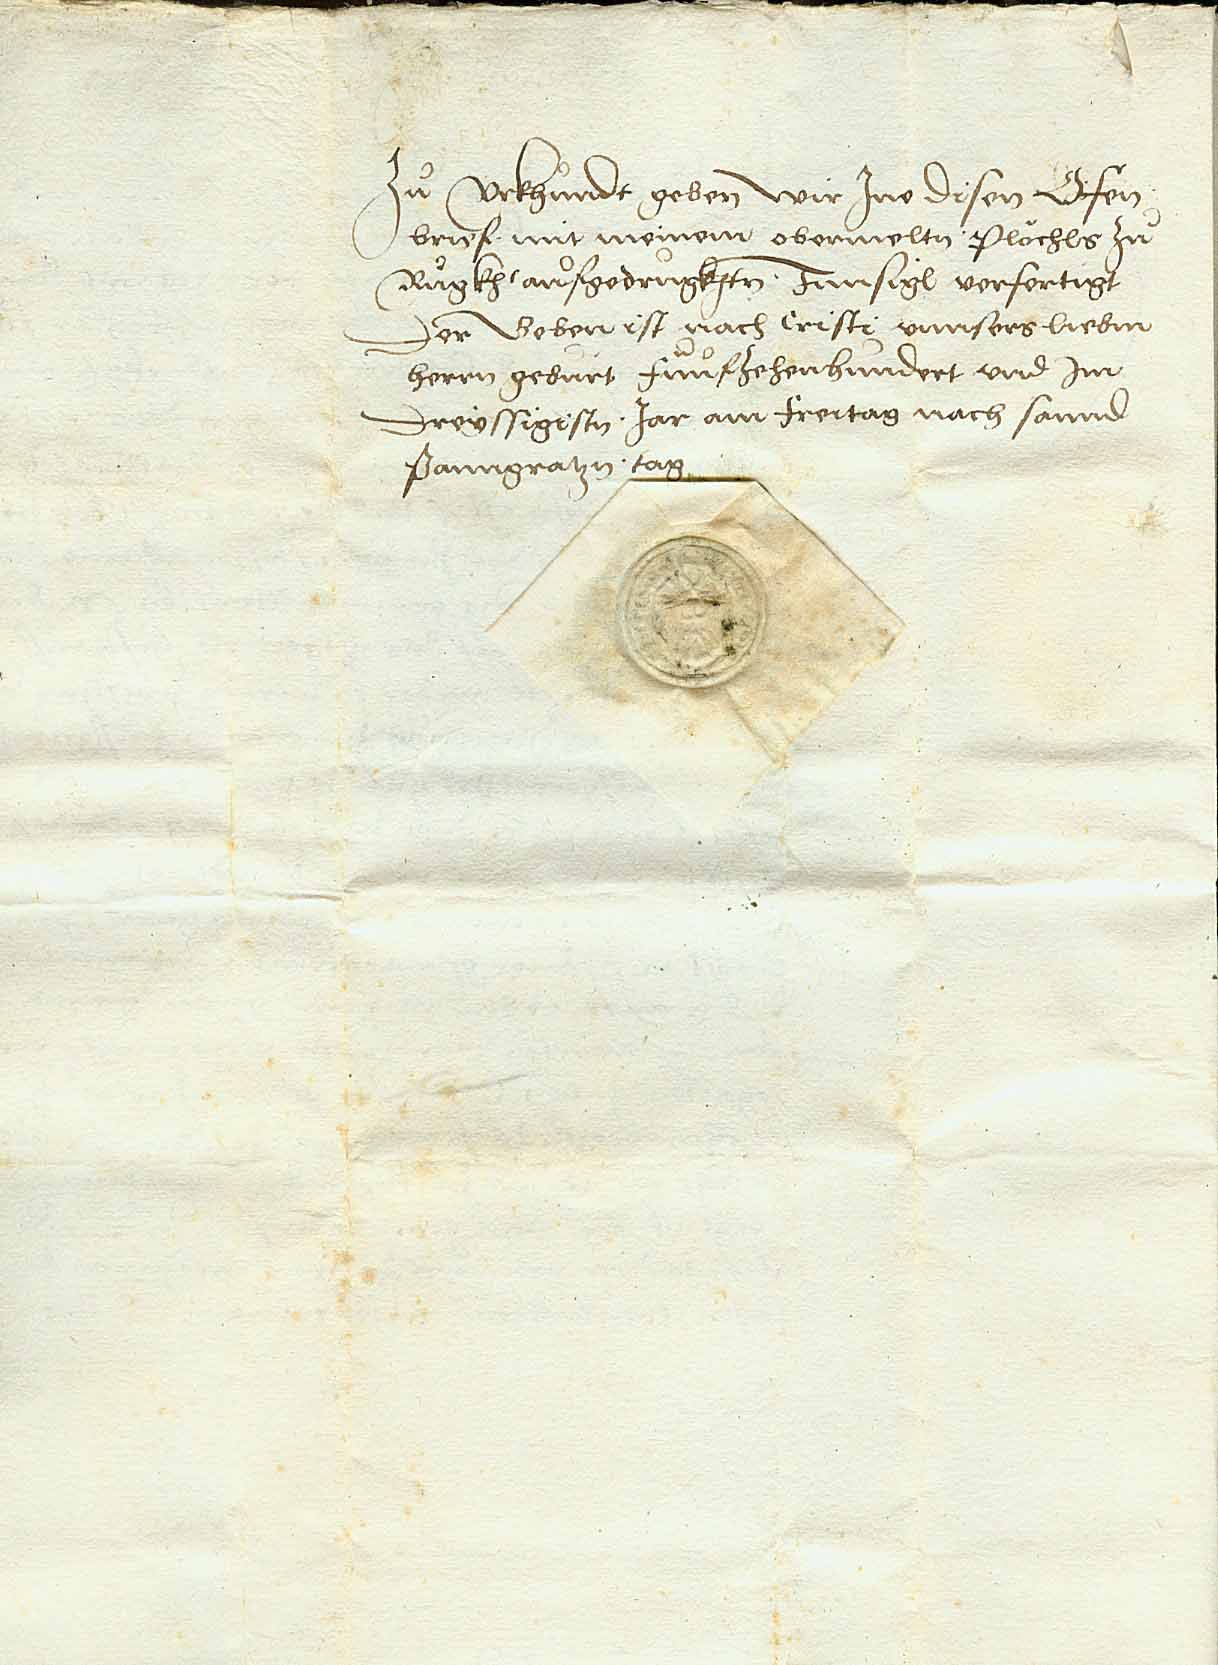 Zů Vrkhundt geben wir Ine disen Offen
brief mit meinem obermeltn Plöchls zů
Rugkh aůfgedrůgkhtn Innsigl verfertigt
Der Geben ist nach Cristi vnnsers liebm
herrn geburt Funfzehenhundert vnd Im
Dreyssigistn Jar am Freitag nach sannd
Panngratzn tag